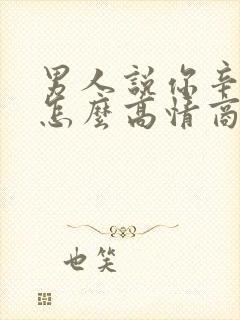 男人說你辛
怎麼高情商
也笑